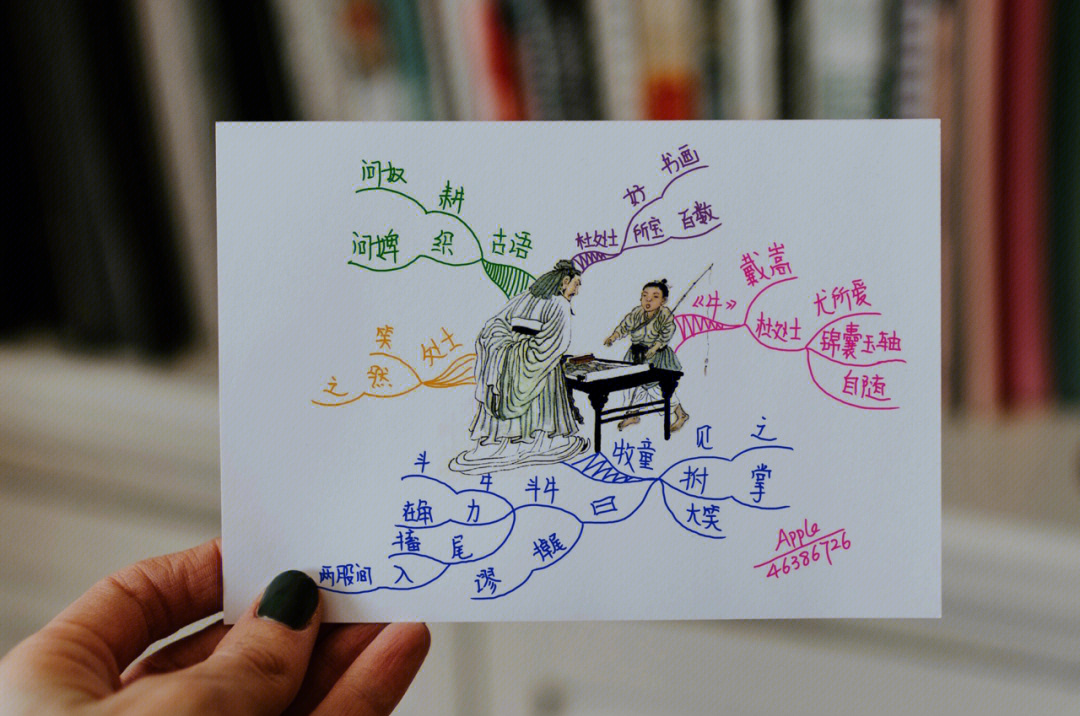 杜处士
好
书画
所宝
百数
《牛》
戴嵩
杜处士
尤所爱
锦囊玉轴
自随
牧童
见
之
拊
掌
大笑
曰
斗牛
牛
斗
力
在角
尾
搐
入
两股间
掉尾
谬
处士
笑
然
之
古语
耕
问奴
织
问婢
Apple
46386726